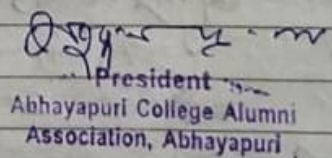 President
Abhayapuri College Alumni
Association, Abhayapuri